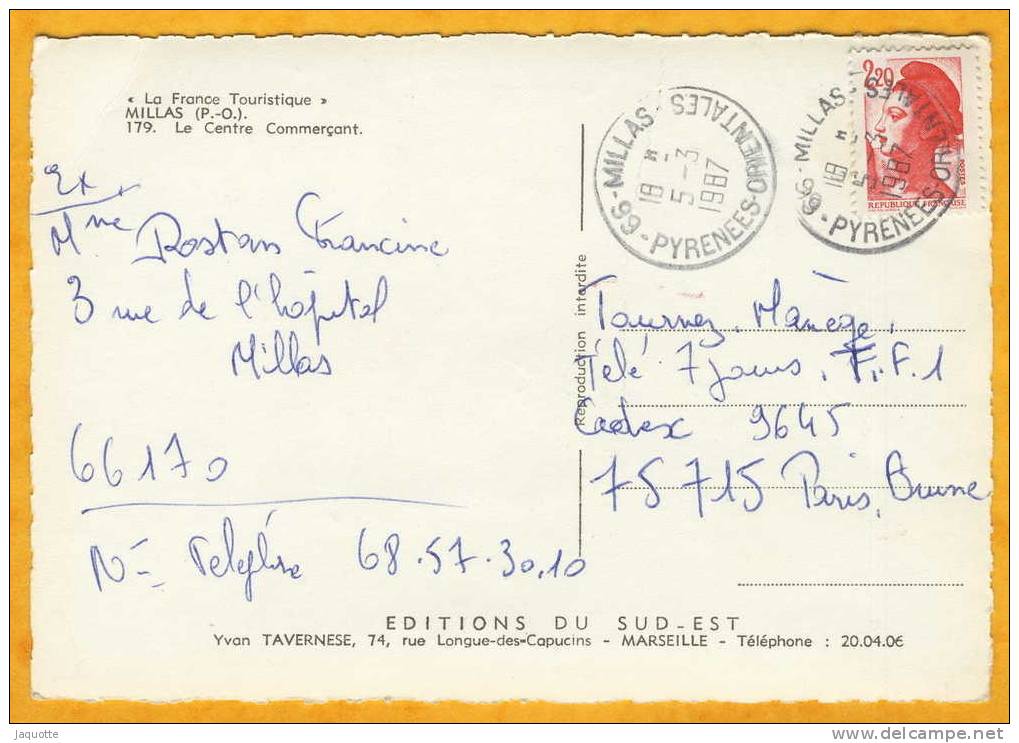 « La France Touristique »
MILLAS (P.-O.).
179. Le Centre Commerçant.
Ex
Mme Rostan Francine
3 rue de l'hôpital
Millas
66170
N= Teleph 68.57.30.10
Reproduction interdite
MILLAS
18 H
5-3
1987
66-PYRENEES-ORIENTALES
2,20
POSTES
REPUBLIQUE FRANÇAISE
MILLAS
18 H
5-3
1987
66-PYRENEES-ORIENTALES
Tournez. Manège.
Télé 7 jours. T.F.1
Cedex 9645
75715 Paris, Brune
EDITIONS DU SUD-EST
Yvan TAVERNESE, 74, rue Longue-des-Capucins - MARSEILLE - Téléphone : 20.04.06
Jaquotte
www.delcampe.net